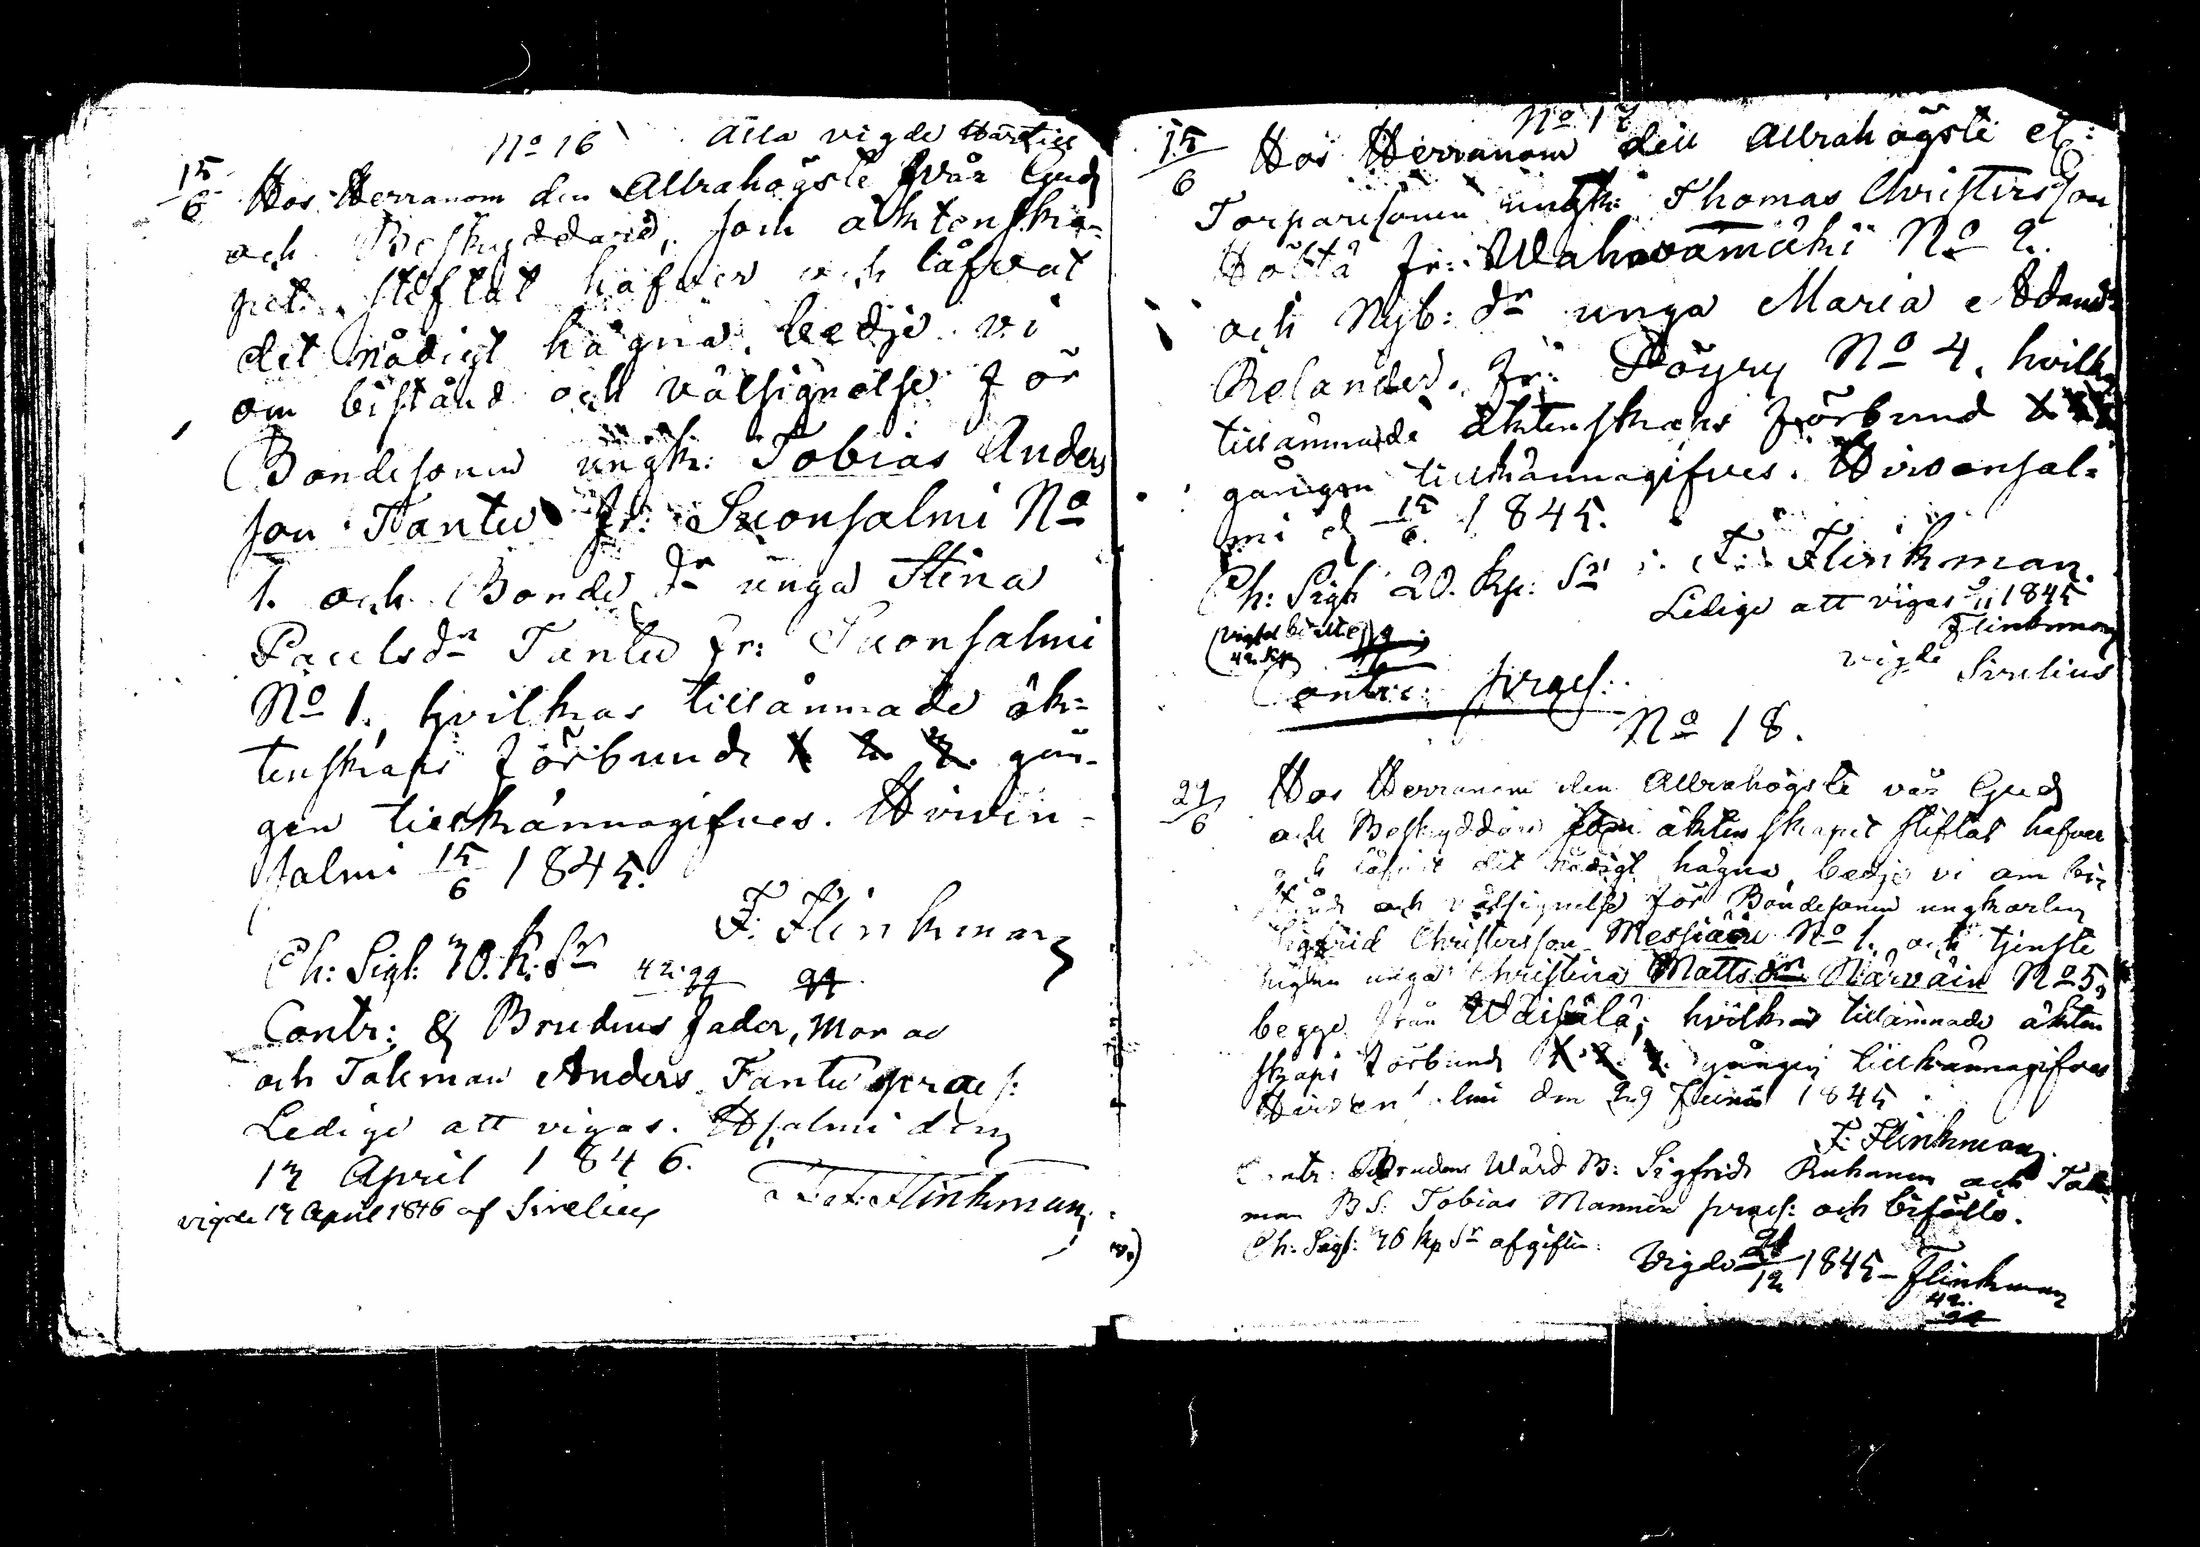 No 16 Alla vigde härtill
15/6 Hos Herranom den Allrahögste vår Gud
och Beskyddare, som äktenska-
pet stiftat hafver och låfvat
det nådigt hägna, bedje vi
om bistånd och välsignelse för
Bondesonen ungk: Tobias Anders
son Tantu fr: Suonsalmi No
1. och Bonde dr unga Stina
Paulsdr Tantu fr: Suonsalmi
No 1, hvilkas tillämnade äk-
tenskaps förbund 1. 2. 3. gån-
gen tillkännagifves. Hirven-
salmi 15/6 1845.
F. Flinkman
Ch: Sigl: 70. K: Sr 42.
Contr: & Brudens fader, Mor
och Taleman Anders Tantu præs:
Ledige att vigas. Hsalmi den
12 April 1846.
F. Flinkman
vigde 12 April 1846 af Sirelius
No 17
15/6 Hos Herranom den Allrahögste etc:
Torparesonen ungk: Thomas Christersson
Höltä fr: Wahvamäki No 2.
och Nyb: dr unga Maria Adamsdr
Relander, fr: Pöyry No 4, hvilkas
tillämnade äktenskaps förbund 1. 2. 3.
gången tillkännagifves. Hirvensal-
mi d 15/6 1845.
F. Flinkman.
Ch: Sigl: 20. kp: Sr
Ledige att vigas 1845
Flinkman
vigde Sirelius
42. kp
Contr: præs:
No 18.
29/6 Hos Herranom den Allrahögste vår Gud
och Beskyddare som äktenskapet stiftat hafver
och låfvat det nådigt hägna, bedje vi om bi-
stånd och välsignelse för Bondesonen ungkarlen
Sigfrid Christersson Messiäin No 1. och tjenste
pigan unga Christina Mattsdr Närväin No 5,
begge från Wäisälä; hvilkas tillämnade äkten
skaps förbund 1. 2. 3. gången tillkännagifves
Hirvensalmi den 29 Junii 1845
F. Flinkman.
Contr: Brudens Wård B: Sigfrid Ruhanen och Tale-
man B S: Tobias Manninen præs: och biföllo.
Ch: Sigl: 76 kp Sr afgiften.
Vigde 1845 – Flinkman
42.